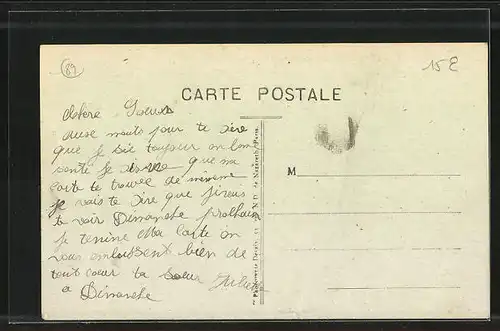 89
15 E
CARTE POSTALE
chère Soeur
deux mouts pour te dire
que je sui toujour en bone
senté je que ma
carte te trouve de mémeme
je vais te dire que j'irais
te voir Dimanche prolhain
je termine Ma carte en
vous embrassent bien de
tout coeur ta soeur Juliette
a Dimanche
M